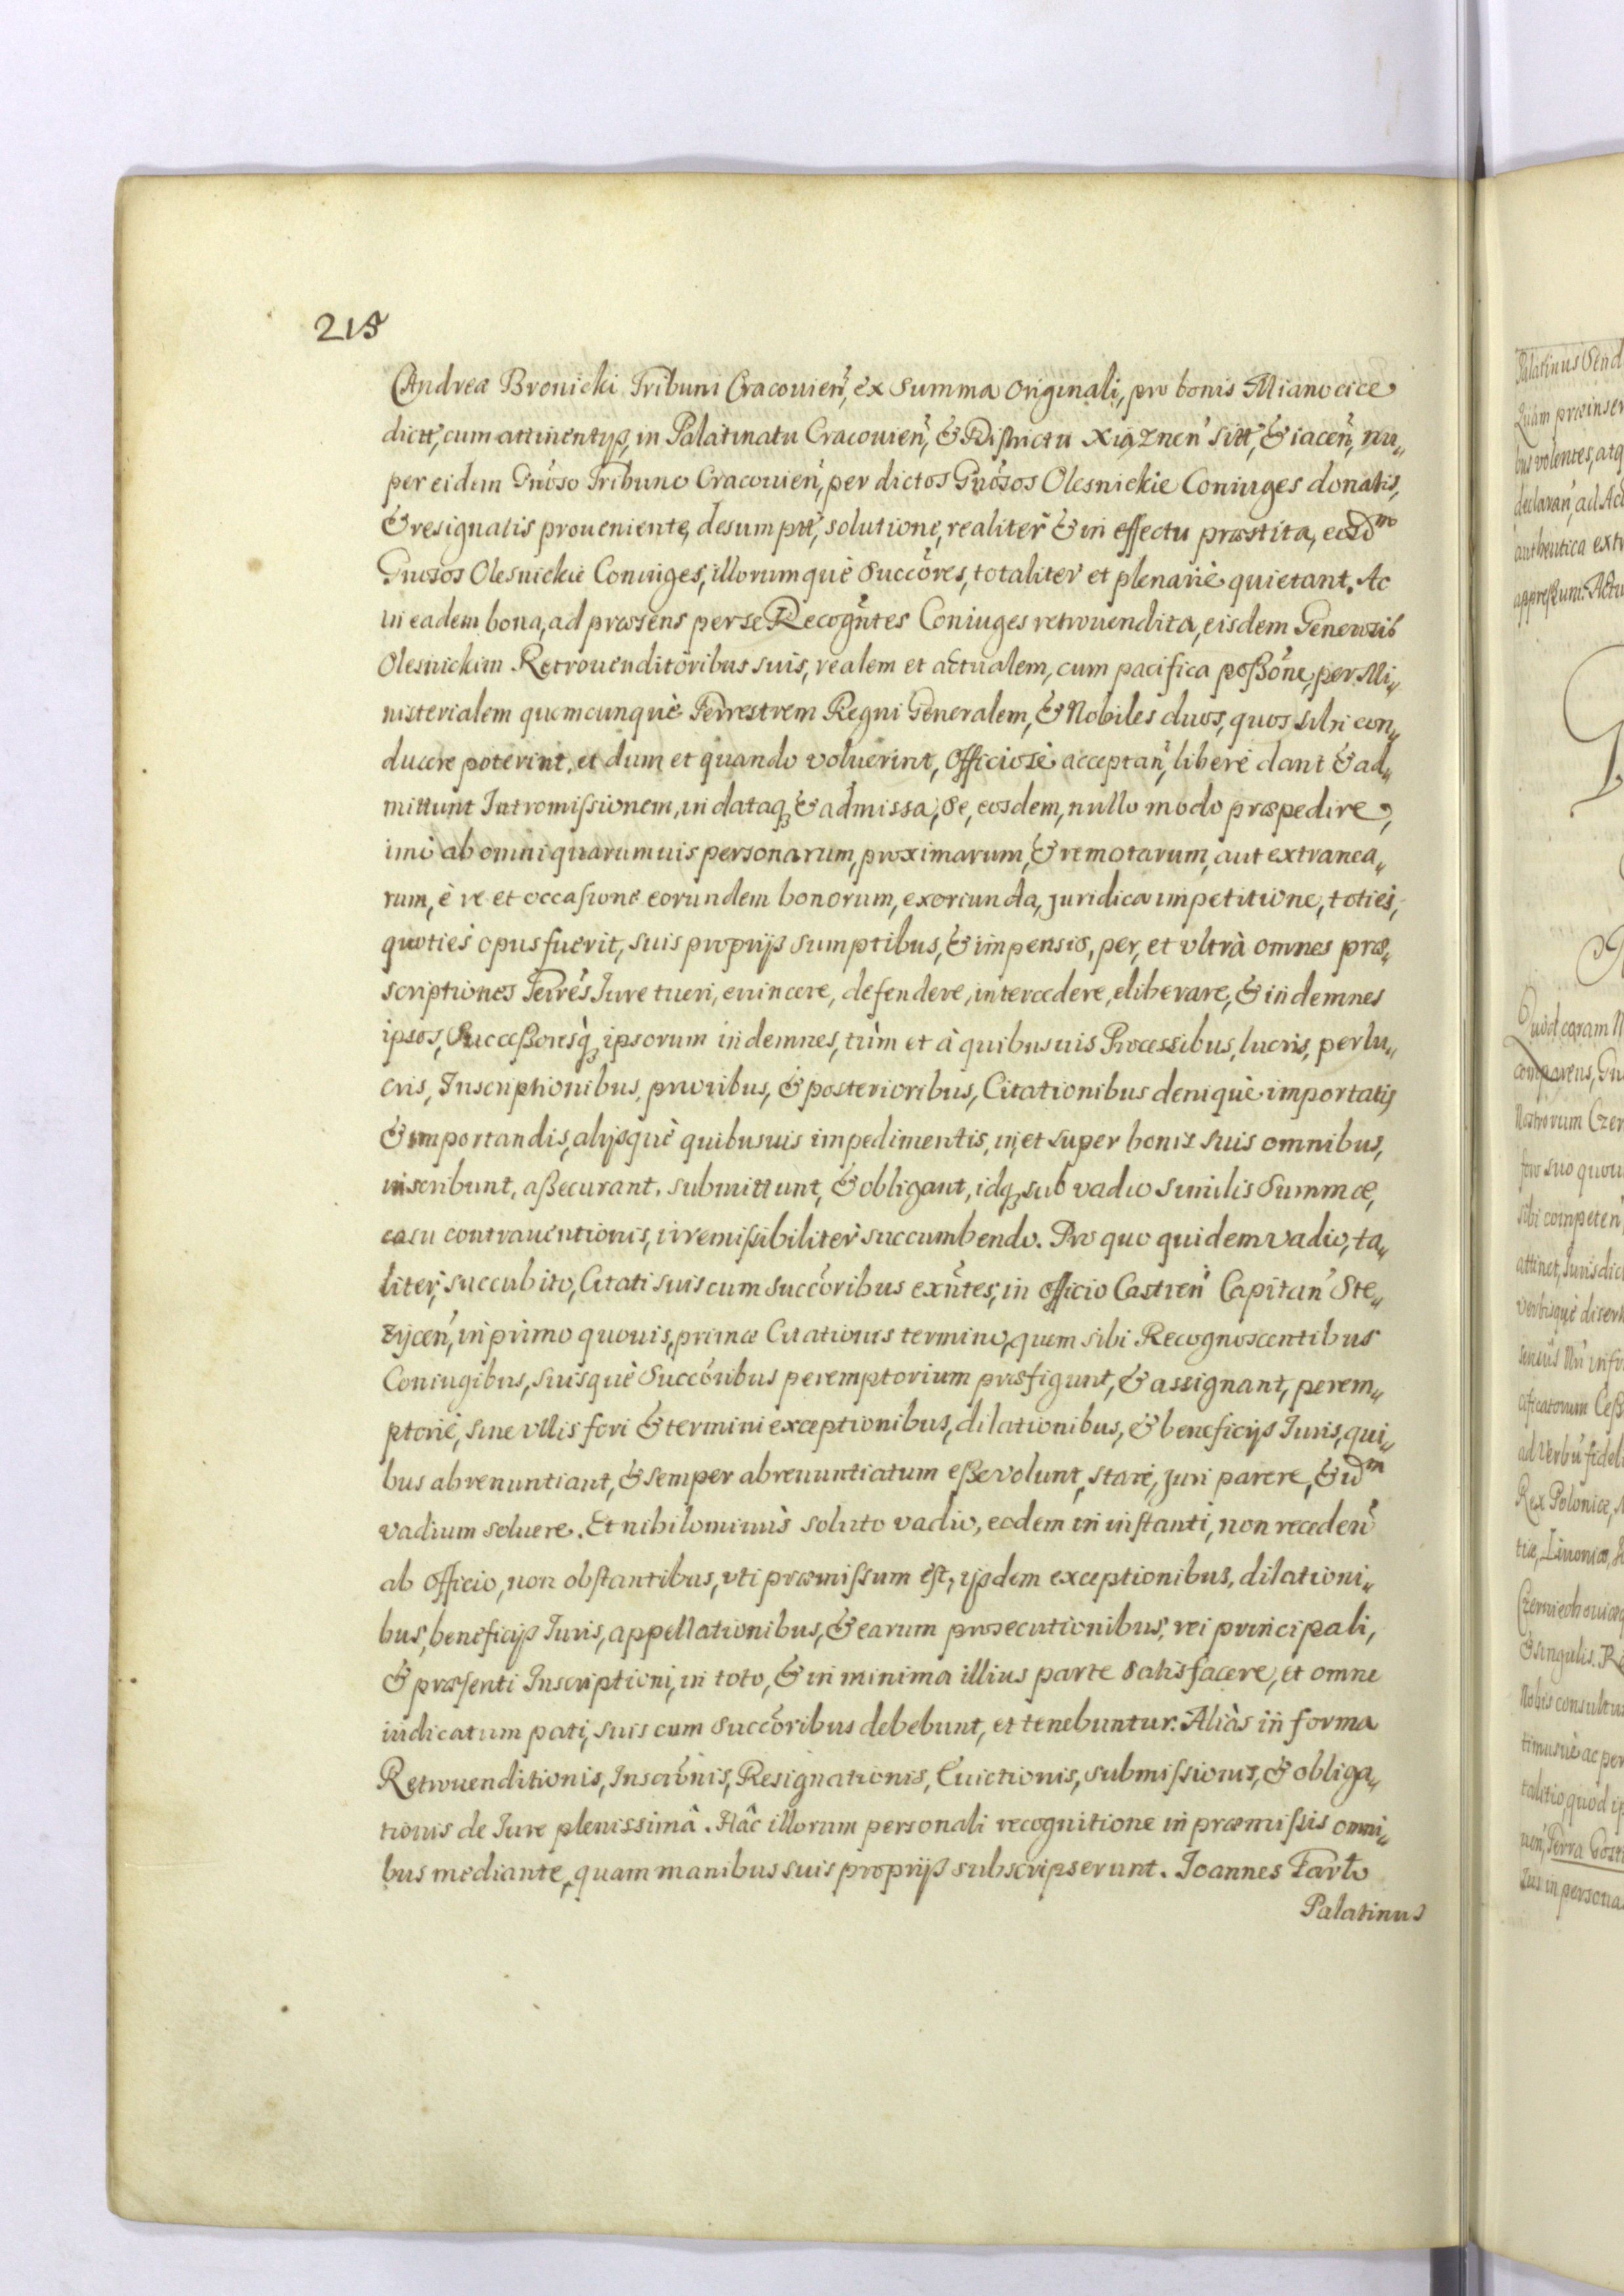 215
Andreæ Bronicki Tribuni Cracouien̄, ex Summa Originali, pro bonis Mianocice
dictt̄, cum attinentijs, in Palatinatu Cracouien̄, & Districtu Xiąznen̄ sitt̄, & iacen̄, nu„
per eidem Gnōso Tribuno Cracouien̄, per dictos Gnōsos Olesnickie Coniuges donatis,
& resignatis proueniente, desumptt̄, solutione, realiter & in effectu præstita, eosdᵐ
Gnosos Olesnickie Coniuges, illorumquè Succōres, totaliter et plenariè quietant. Ac
in eadem bona, ad præsens per se Recogn̄tes Coniuges retrouendita, eisdem Generosis
Olesnickim Retrouenditoribus suis, realem et actualem, cum pacifica poßōne, per Mi„
nisterialem quemcunquè Terrestrem Regni Generalem, & Nobiles duos, quos sibi con„
ducere poterint, et dum et quando voluerint, Officiosè acceptan̄, liberè dant & ad„
mittunt Intromissionem, in dataq₃ & admissa, Se, eosdem, nullo modo præpedire,
imò ab omni quarumuis personarum, proximarum, & remotarum, aut extranea„
rum, è re et occasione eorundem bonorum, exoriunda, juridica impetitione, totiès,
quotiès opus fuerit, suis proprijs sumptibus, & impensis, per, et vltrà omnes præ„
scriptiones Terrēs Iure tueri, euincere, defendere, intercedere, eliberare, & indemnes
ipsos, Succeßoresq₃ ipsorum indemnes, tùm et à quibusuis Processibus, lucris, perlu„
cris, Inscriptionibus, prioribus, & posterioribus, Citationibus deniquè importatis
& importandis, alijsquè quibusuis impedimentis, in, et super bonis suis omnibus,
inscribunt, aßecurant, submittunt, & obligant, idq₃ sub vadio similis Summæ,
casu contrauentionis, irremissibiliter succumbendo. Pro quo quidem vadio, ta„
liter, succubito, Citati suis cum succōribus exn̄tes, in Officio Castren̄ Capitan̄ Ste„
zycen̄, in primo quouis, primæ Citationis termino, quem sibi Recognoscentibus
Coniugibus, suisquè Succōribus peremptorium præfigunt, & assignant, perem„
ptoriè, sine vllis fori & termini exceptionibus, dilationibus, & beneficijs Iuris, qui„
bus abrenuntiant, & semper abrenuntiatum eße volunt, stare, juri parere, & idᵐ
vadium soluere. Et nihilominùs soluto vadio, eodem in instanti, non receden̄
ab Officio, non obstantibus, vti præmissum est, ijsdem exceptionibus, dilationi„
bus, beneficijs Iuris, appellationibus, & earum prosecutionibus, rei principali,
& præsenti Inscriptioni, in toto, & in minima illius parte satisfacere, et omne
iudicatum pati, suis cum succōribus debebunt, et tenebuntur. Aliàs in forma
Retrouenditionis, Inscrōnis, Resignationis, Euictionis, submissionis, & obliga„
tionis de Iure plenissimâ. Hâc illorum personali recognitione in præmissis omni„
bus mediante, quam manibus suis proprijs subscripserunt. Joannes Tarło
Palatinus